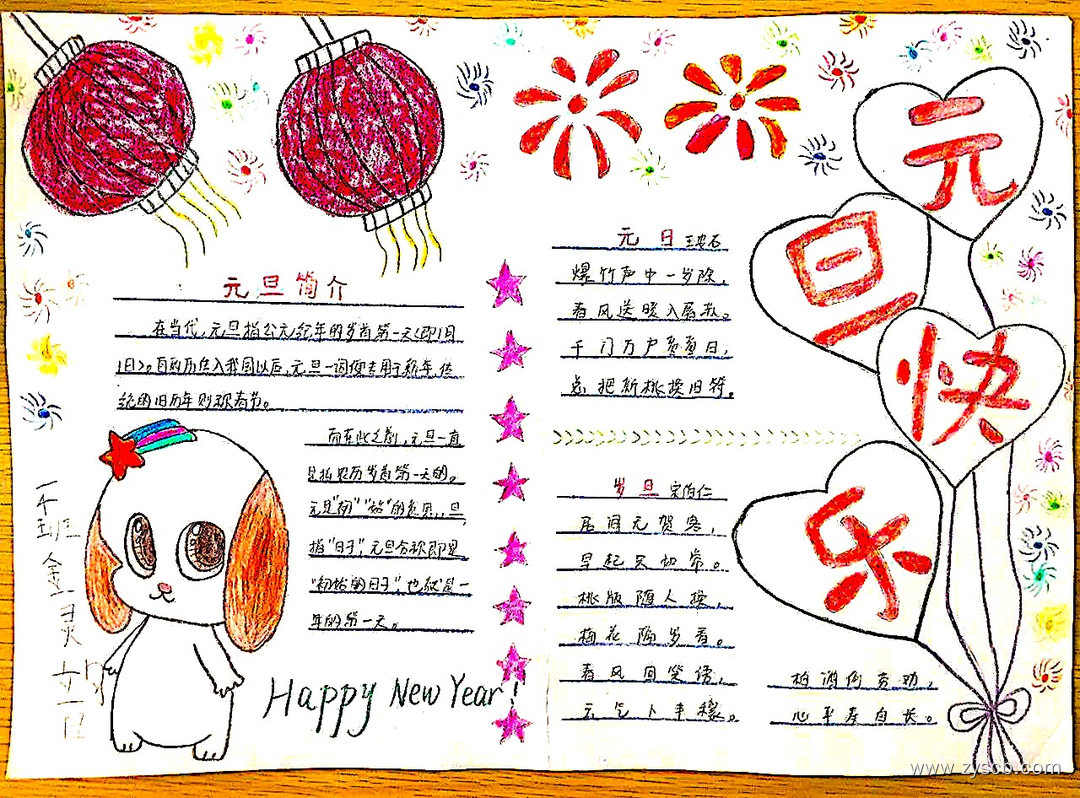 元旦快乐
元旦简介
在当代,元旦指公元纪年的岁首第一天(即1月
1日)。自西历传入我国以后,元旦一词便专用于新年,传
统的旧历年则称春节。
而在此之前,元旦一直
是指农历岁首第一天的。
元是"初""始"的意思,旦,
指"日子",元旦合称即是
"初始的日子",也就是一
年的第一天。
Happy New Year!
元旦 王安石
爆竹声中一岁除,
春风送暖入屠苏。
千门万户日,
总把新桃换旧符。
岁旦 宋伯仁
居闲无贺客,
早起只如常。
桃版随人换,
梅花隔岁香。
春风回笑语,
云气卜丰穰。
柏酒何劳劝,
心平寿自长。
班
www.zyscb.com